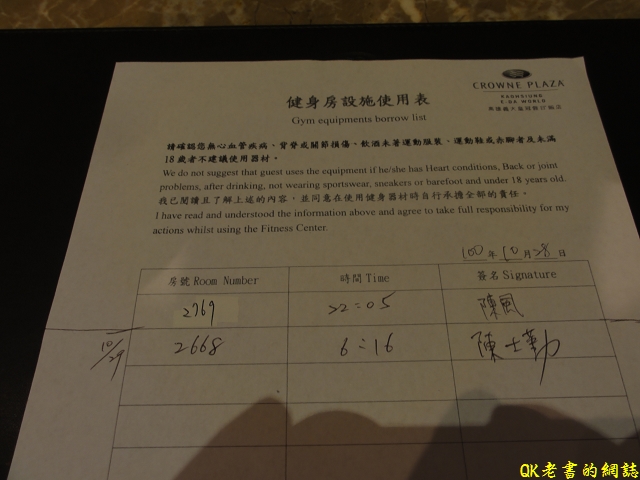 CROWNE PLAZA
KAOHSIUNG
E-DA WORLD
高雄義大皇冠假日飯店
健身房設施使用表
Gym equipments borrow list
請確認您無心血管疾病、背脊或關節損傷、飲酒未著運動服裝、運動鞋或赤腳者及未滿
18歲者不建議使用器材。
We do not suggest that guest uses the equipment if he/she has Heart conditions, Back or joint
problems, after drinking, not wearing sportswear, sneakers or barefoot and under 18 years old.
我已閱讀且了解上述的內容，並同意在使用健身器材時自行承擔全部的責任。
I have read and understood the information above and agree to take full responsibility for my
actions whilst using the Fitness Center.
100 年 10 月 28 日
房號 Room Number 時間 Time 簽名 Signature
2769 22:05 陳風
10/29 2668 6:16 陳士勤
QK老書的網誌